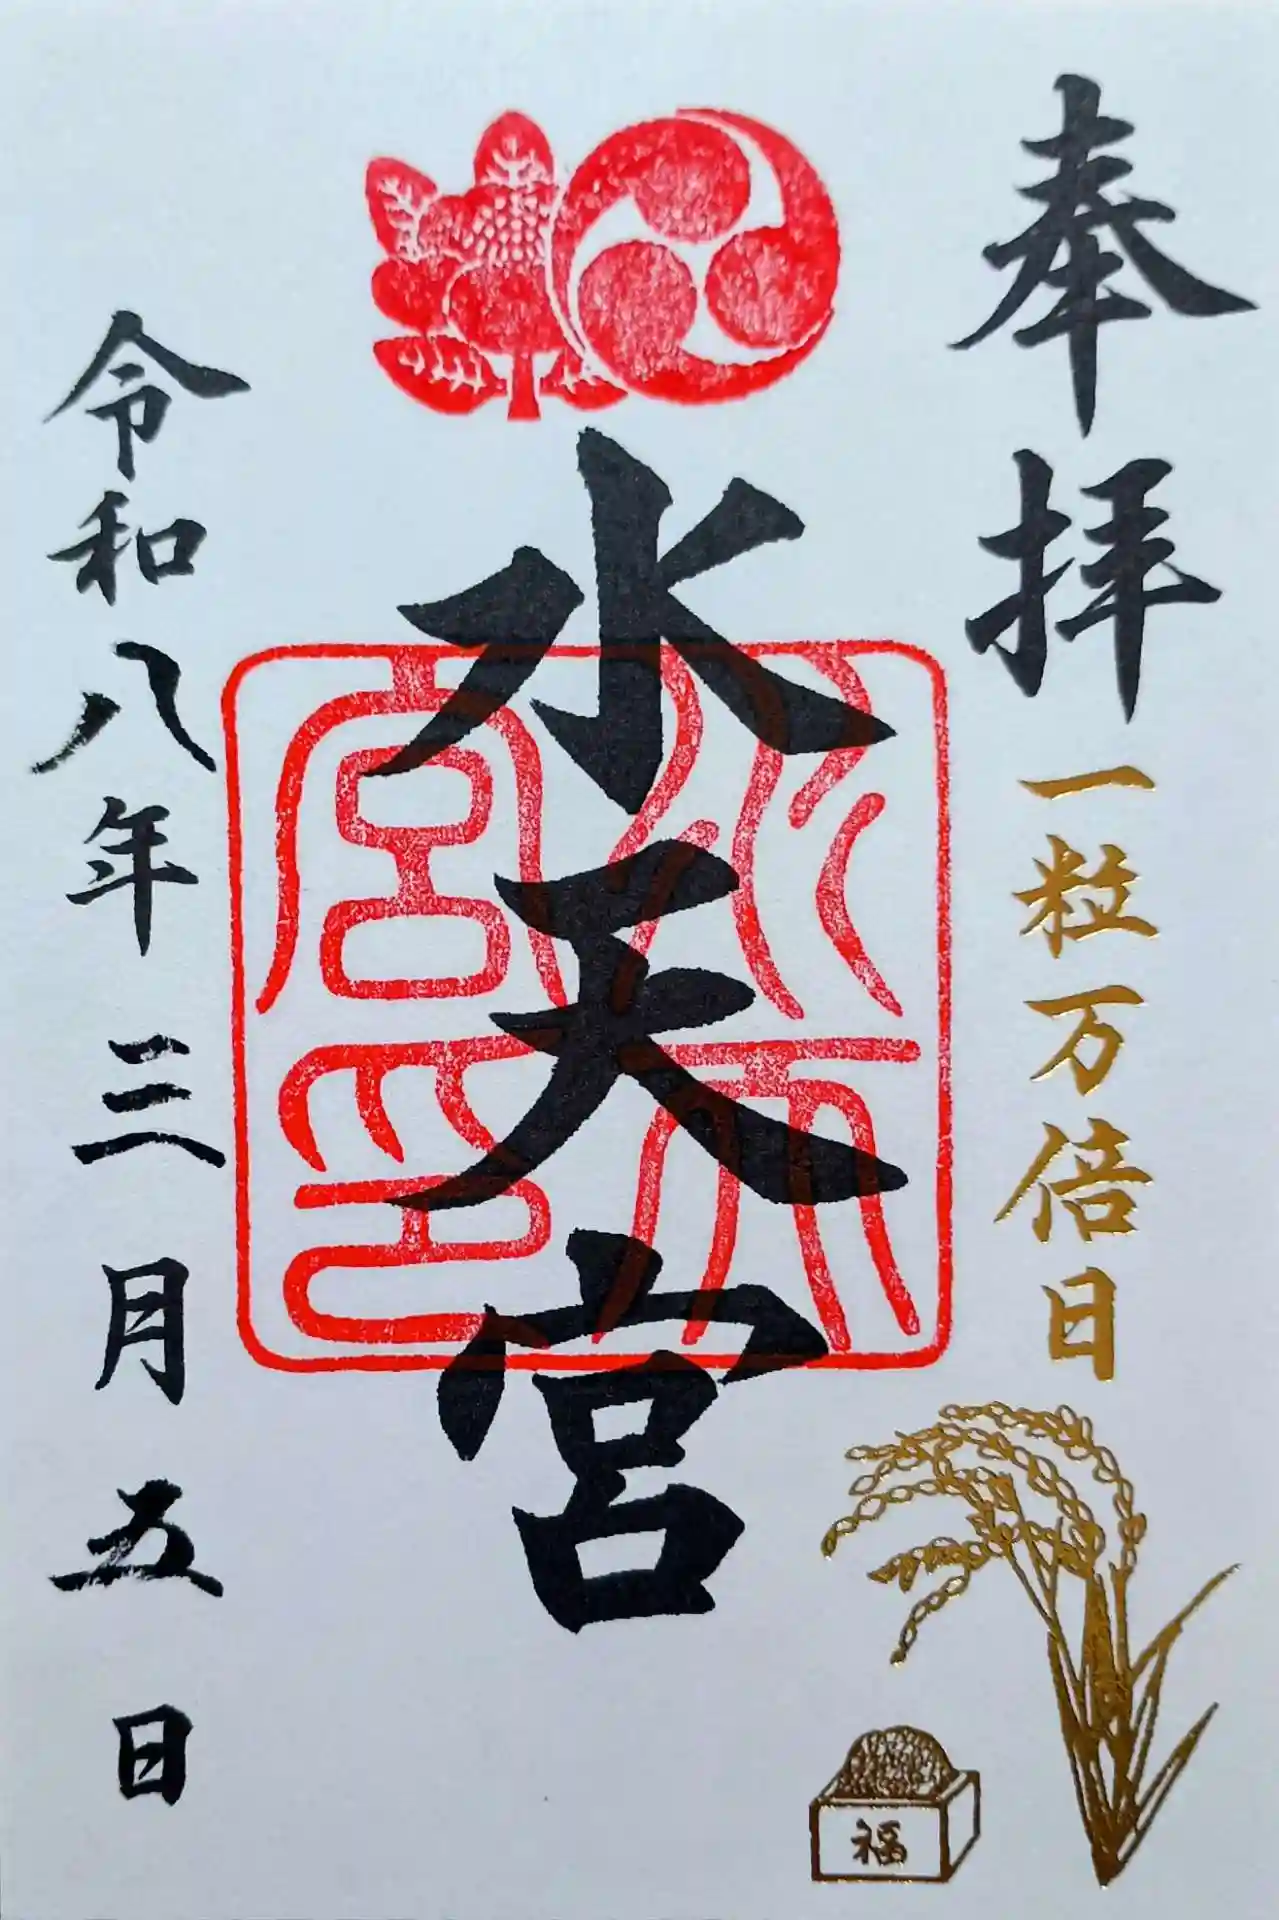 奉拝
一粒万倍日
福
水天宮
水天宮印
令和八年三月五日